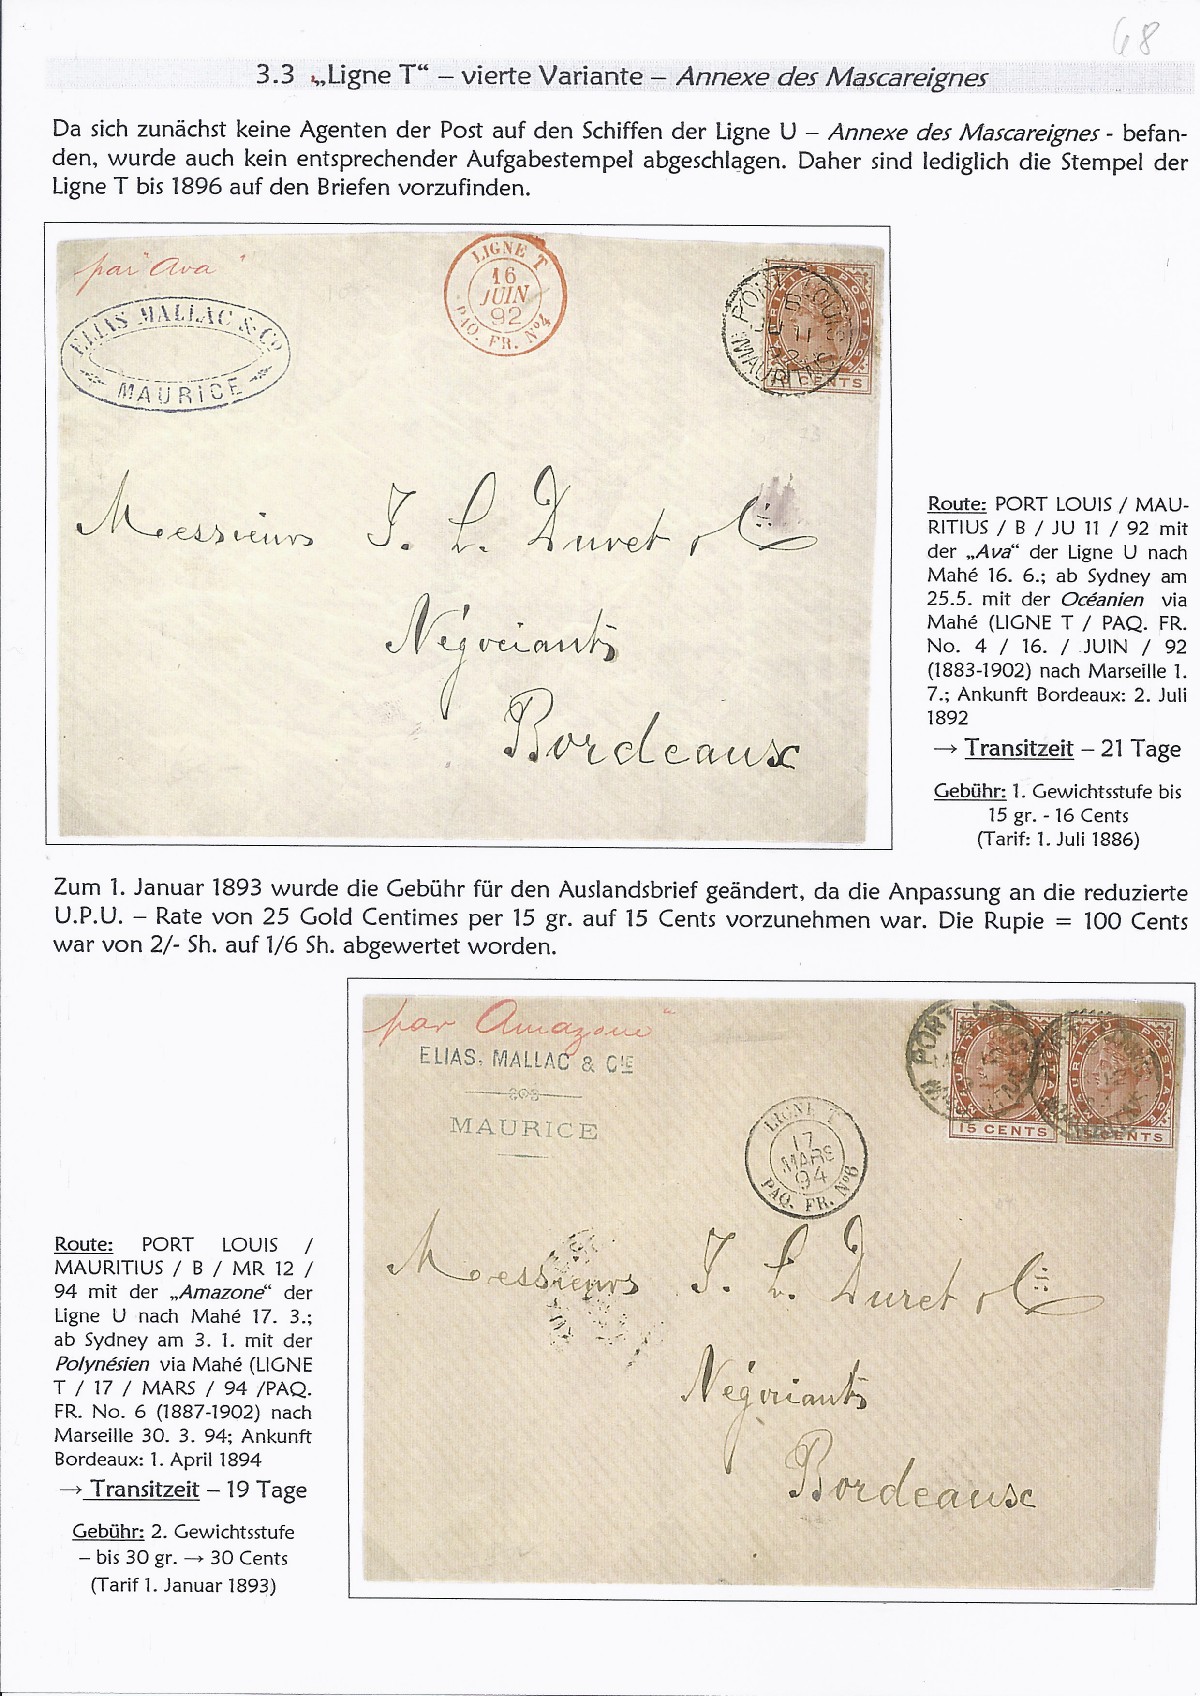 68
3.3 „Ligne T“ – vierte Variante – Annexe des Mascareignes
Da sich zunächst keine Agenten der Post auf den Schiffen der Ligne U – Annexe des Mascareignes - befan-
den, wurde auch kein entsprechender Aufgabestempel abgeschlagen. Daher sind lediglich die Stempel der
Ligne T bis 1896 auf den Briefen vorzufinden.
par "Ava"
ELIAS MALLAC & Co
MAURICE
LIGNE T
16
JUIN
92
PAQ. FR. No4
PORT LOUIS
B
JU 11
92
MAURITIUS
MAURITIUS POSTAGE
16 CENTS
Messieurs J. L. Duret & Cie
Négociants
Bordeaux
Route: PORT LOUIS / MAU-
RITIUS / B / JU 11 / 92 mit
der „Ava“ der Ligne U nach
Mahé 16. 6.; ab Sydney am
25.5. mit der Océanien via
Mahé (LIGNE T / PAQ. FR.
No. 4 / 16. / JUIN / 92
(1883-1902) nach Marseille 1.
7.; Ankunft Bordeaux: 2. Juli
1892
→ Transitzeit – 21 Tage
Gebühr: 1. Gewichtsstufe bis
15 gr. - 16 Cents
(Tarif: 1. Juli 1886)
Zum 1. Januar 1893 wurde die Gebühr für den Auslandsbrief geändert, da die Anpassung an die reduzierte
U.P.U. – Rate von 25 Gold Centimes per 15 gr. auf 15 Cents vorzunehmen war. Die Rupie = 100 Cents
war von 2/- Sh. auf 1/6 Sh. abgewertet worden.
par Amazone"
ELIAS, MALLAC & CIE
MAURICE
LIGNE T
17
MARS
94
PAQ. FR. No6
PORT
MAURITIUS POSTAGE
15 CENTS
MAURITIUS POSTAGE
15 CENTS
Messieurs J. L. Duret & Cie
Négociants
Bordeaux
Route: PORT LOUIS /
MAURITIUS / B / MR 12 /
94 mit der „Amazone“ der
Ligne U nach Mahé 17. 3.;
ab Sydney am 3. 1. mit der
Polynésien via Mahé (LIGNE
T / 17 / MARS / 94 /PAQ.
FR. No. 6 (1887-1902) nach
Marseille 30. 3. 94; Ankunft
Bordeaux: 1. April 1894
→ Transitzeit – 19 Tage
Gebühr: 2. Gewichtsstufe
– bis 30 gr. → 30 Cents
(Tarif 1. Januar 1893)